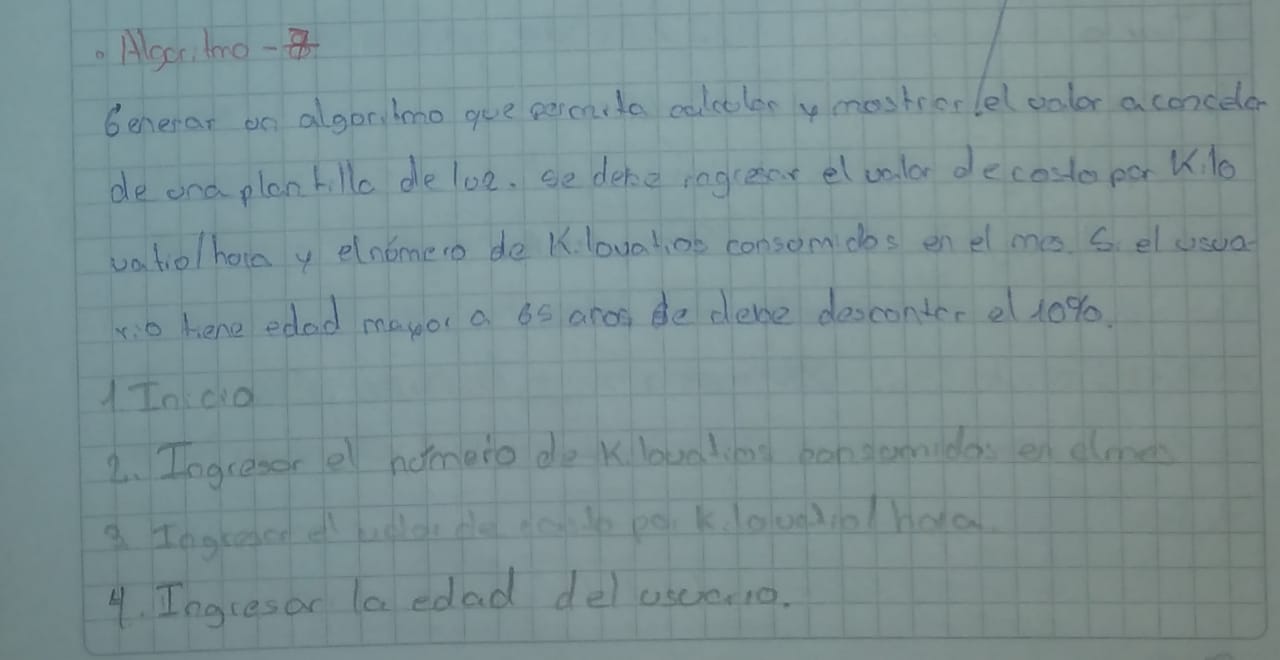 • Algoritmo - 8
Generar un algoritmo que permita calcular y mostrar el valor a cancelar
de una plantilla de luz. se debe ingresar el valor de costo por Kilo
vatio/hora y el número de Kilovatios consumidos en el mes. Si el usua
rio tiene edad mayor a 65 años se debe descontar el 10%.
1 Inicio
2. Ingresar el número de Kilovatios consumidos en el mes
3 Ingresar el valor de costo por Kilovatio/hora
4. Ingresar la edad del usuario.